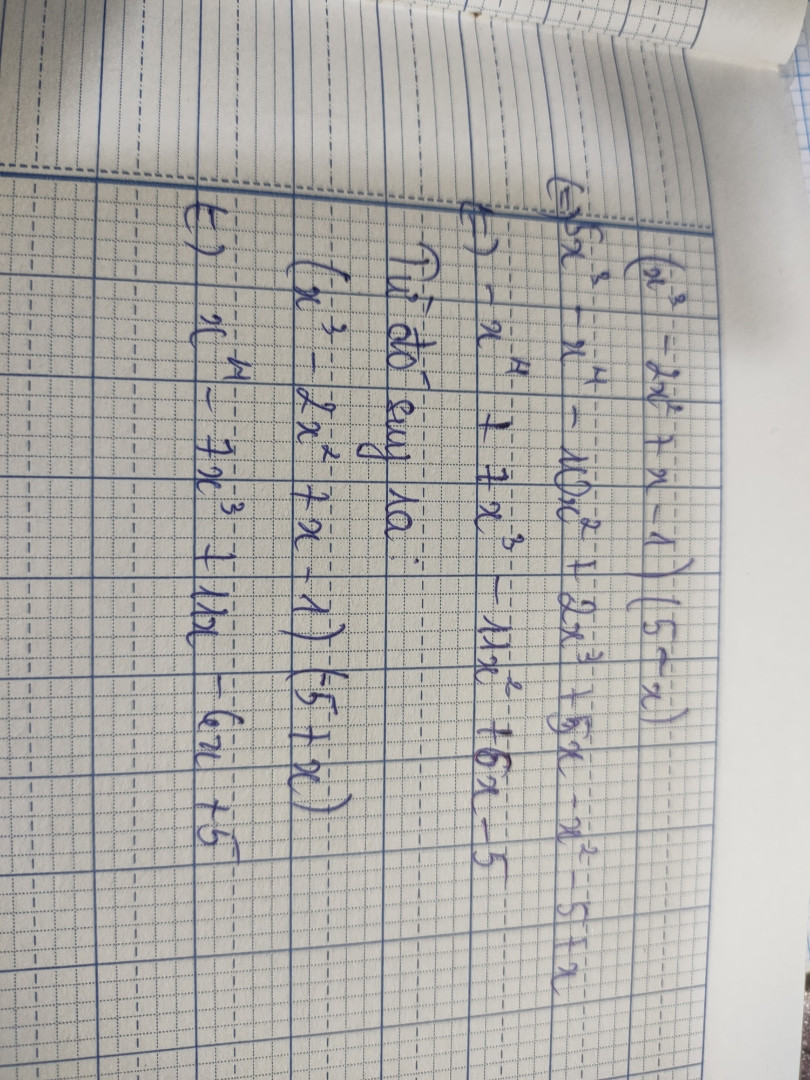 (x³ - 2x² + x - 1) (5 - x)
(=) 5x³ - x⁴ - 10x² + 2x³ + 5x - x² - 5 + x
(=) - x⁴ + 7x³ - 11x² + 6x - 5
Từ đó suy ra:
(x³ - 2x² + x - 1) (-5 + x)
(=) x⁴ - 7x³ + 11x - 6x + 5